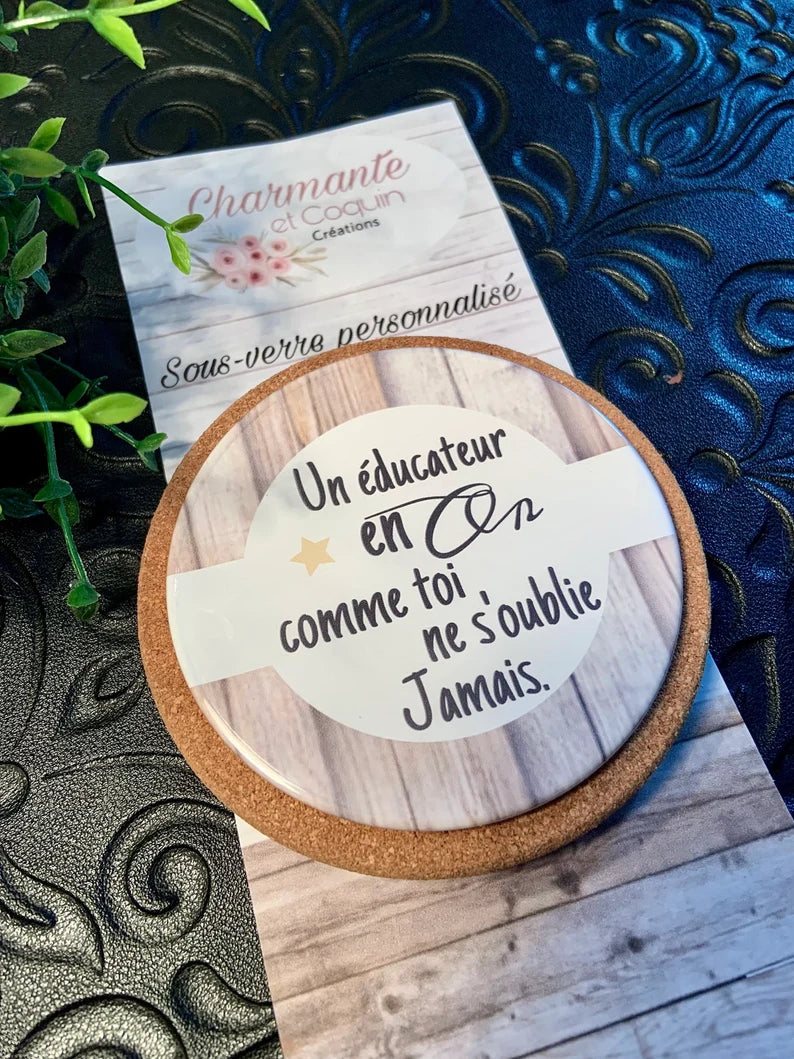 Charmante
et Coquin
Créations
Sous-verre personnalisé
Un éducateur
en Or
comme toi,
ne s'oublie
Jamais.